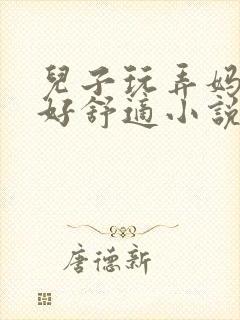 兒子玩弄妈
好舒適小說
唐德新